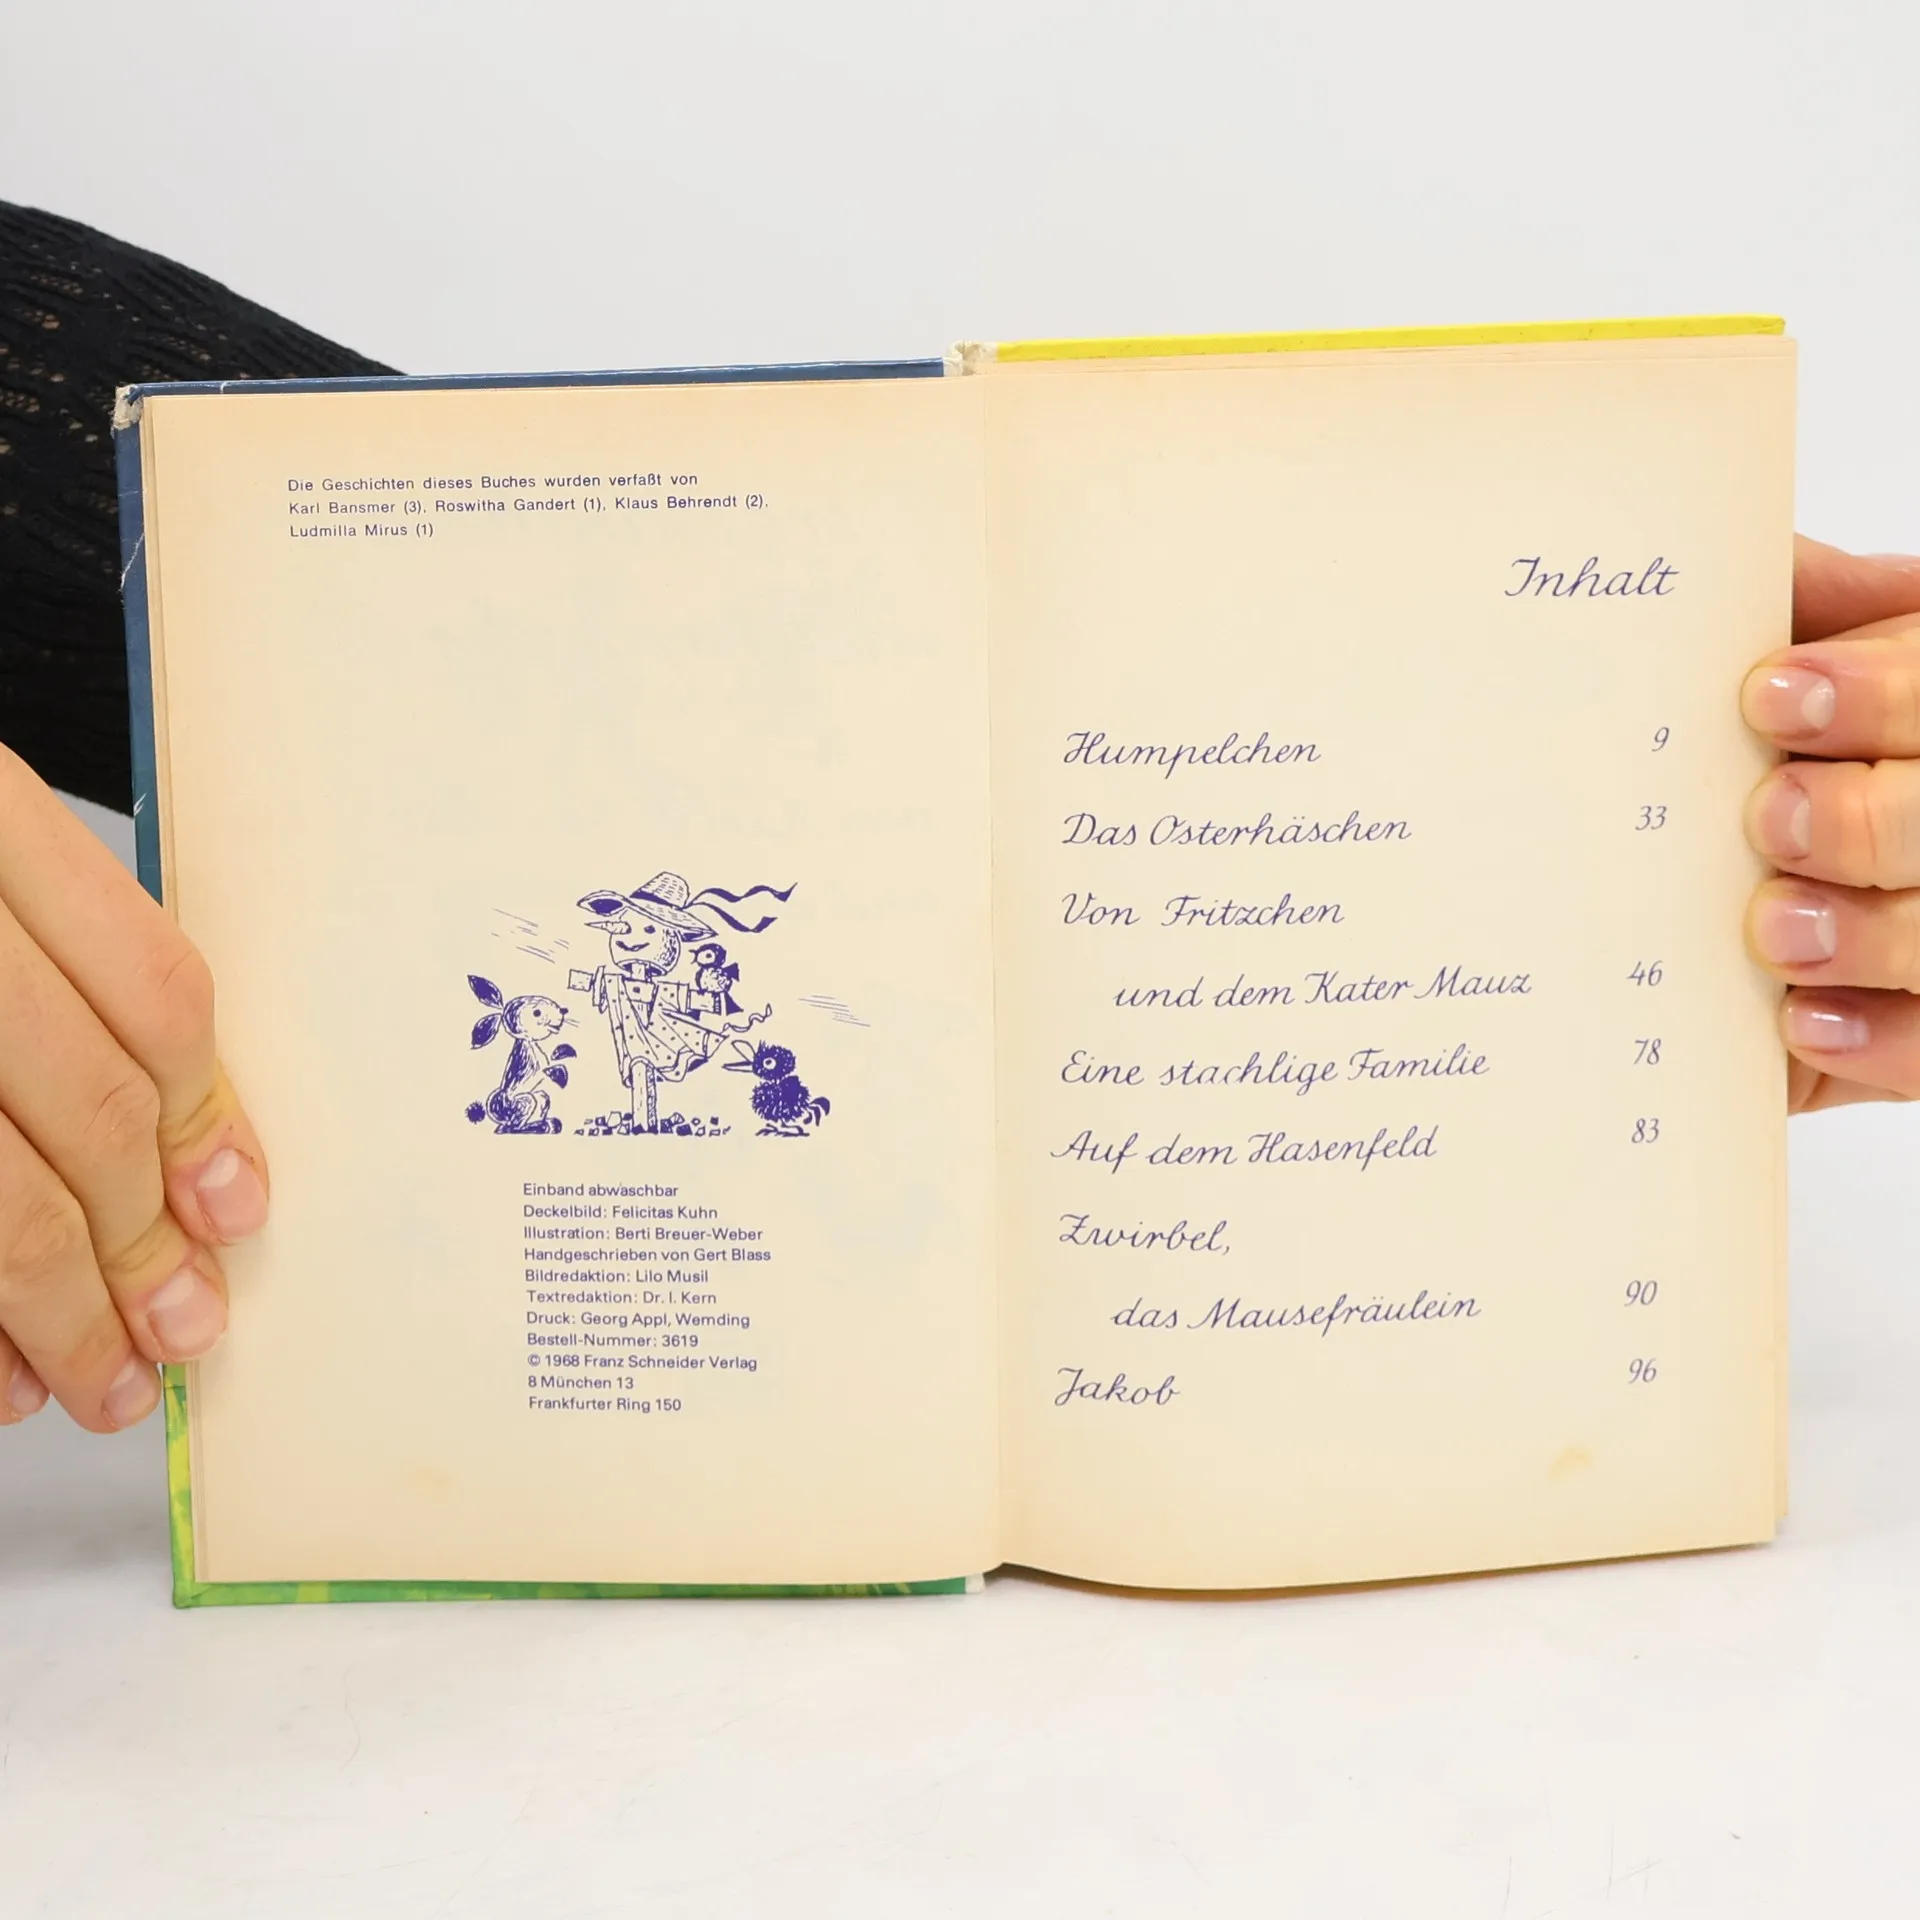 Die Geschichten dieses Buches wurden verfaßt von
Karl Bansmer (3), Roswitha Gandert (1), Klaus Behrendt (2),
Ludmilla Mirus (1)
Einband abwaschbar
Deckelbild: Felicitas Kuhn
Illustration: Berti Breuer-Weber
Handgeschrieben von Gert Blass
Bildredaktion: Lilo Musil
Textredaktion: Dr. I. Kern
Druck: Georg Appl, Wemding
Bestell-Nummer: 3619
© 1968 Franz Schneider Verlag
8 München 13
Frankfurter Ring 150
Inhalt
Humpelchen 9
Das Osterhäschen 33
Von Fritzchen
und dem Kater Mauz 46
Eine stachlige Familie 78
Auf dem Hasenfeld 83
Zwirbel,
das Mausefräulein 90
Jakob 96